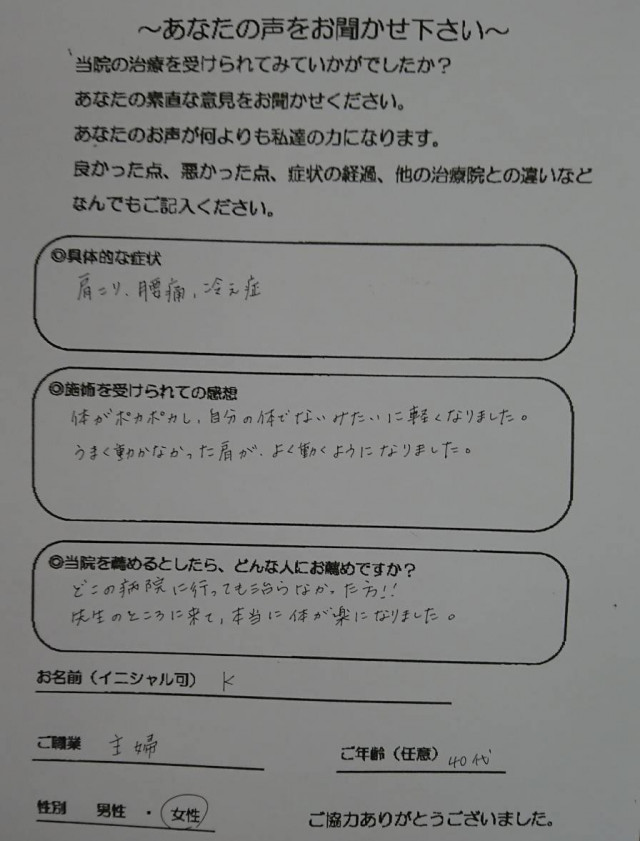 ～あなたの声をお聞かせ下さい～
当院の治療を受けられてみていかがでしたか？
あなたの素直な意見をお聞かせください。
あなたのお声が何よりも私達の力になります。
良かった点、悪かった点、症状の経過、他の治療院との違いなど
なんでもご記入ください。
◎具体的な症状
肩こり、腰痛、冷え症
◎施術を受けられての感想
体がポカポカし、自分の体でないみたいに軽くなりました。
うまく動かなかった肩が、よく動くようになりました。
◎当院を薦めるとしたら、どんな人にお薦めですか？
どこの病院に行っても治らなかった方!!
先生のところに来て、本当に体が楽になりました。
お名前（イニシャル可） K
ご職業 主婦
ご年齢（任意） 40代
性別 男性 ・ 女性
ご協力ありがとうございました。